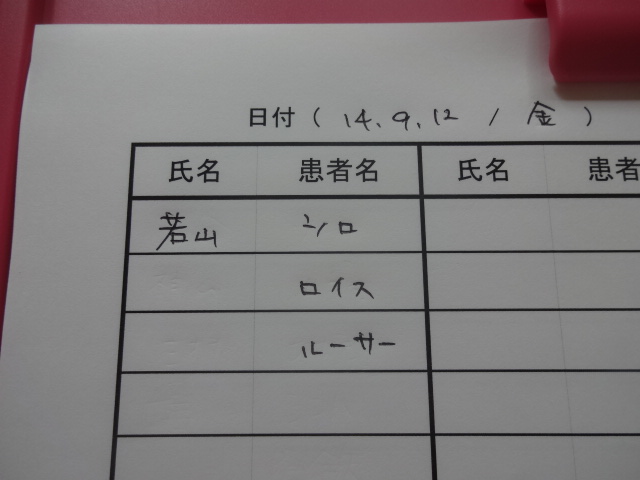 日付（14.9.12 / 金）
氏名 患者名 氏名 患者
若山 シロ
ロイス
ルーサー